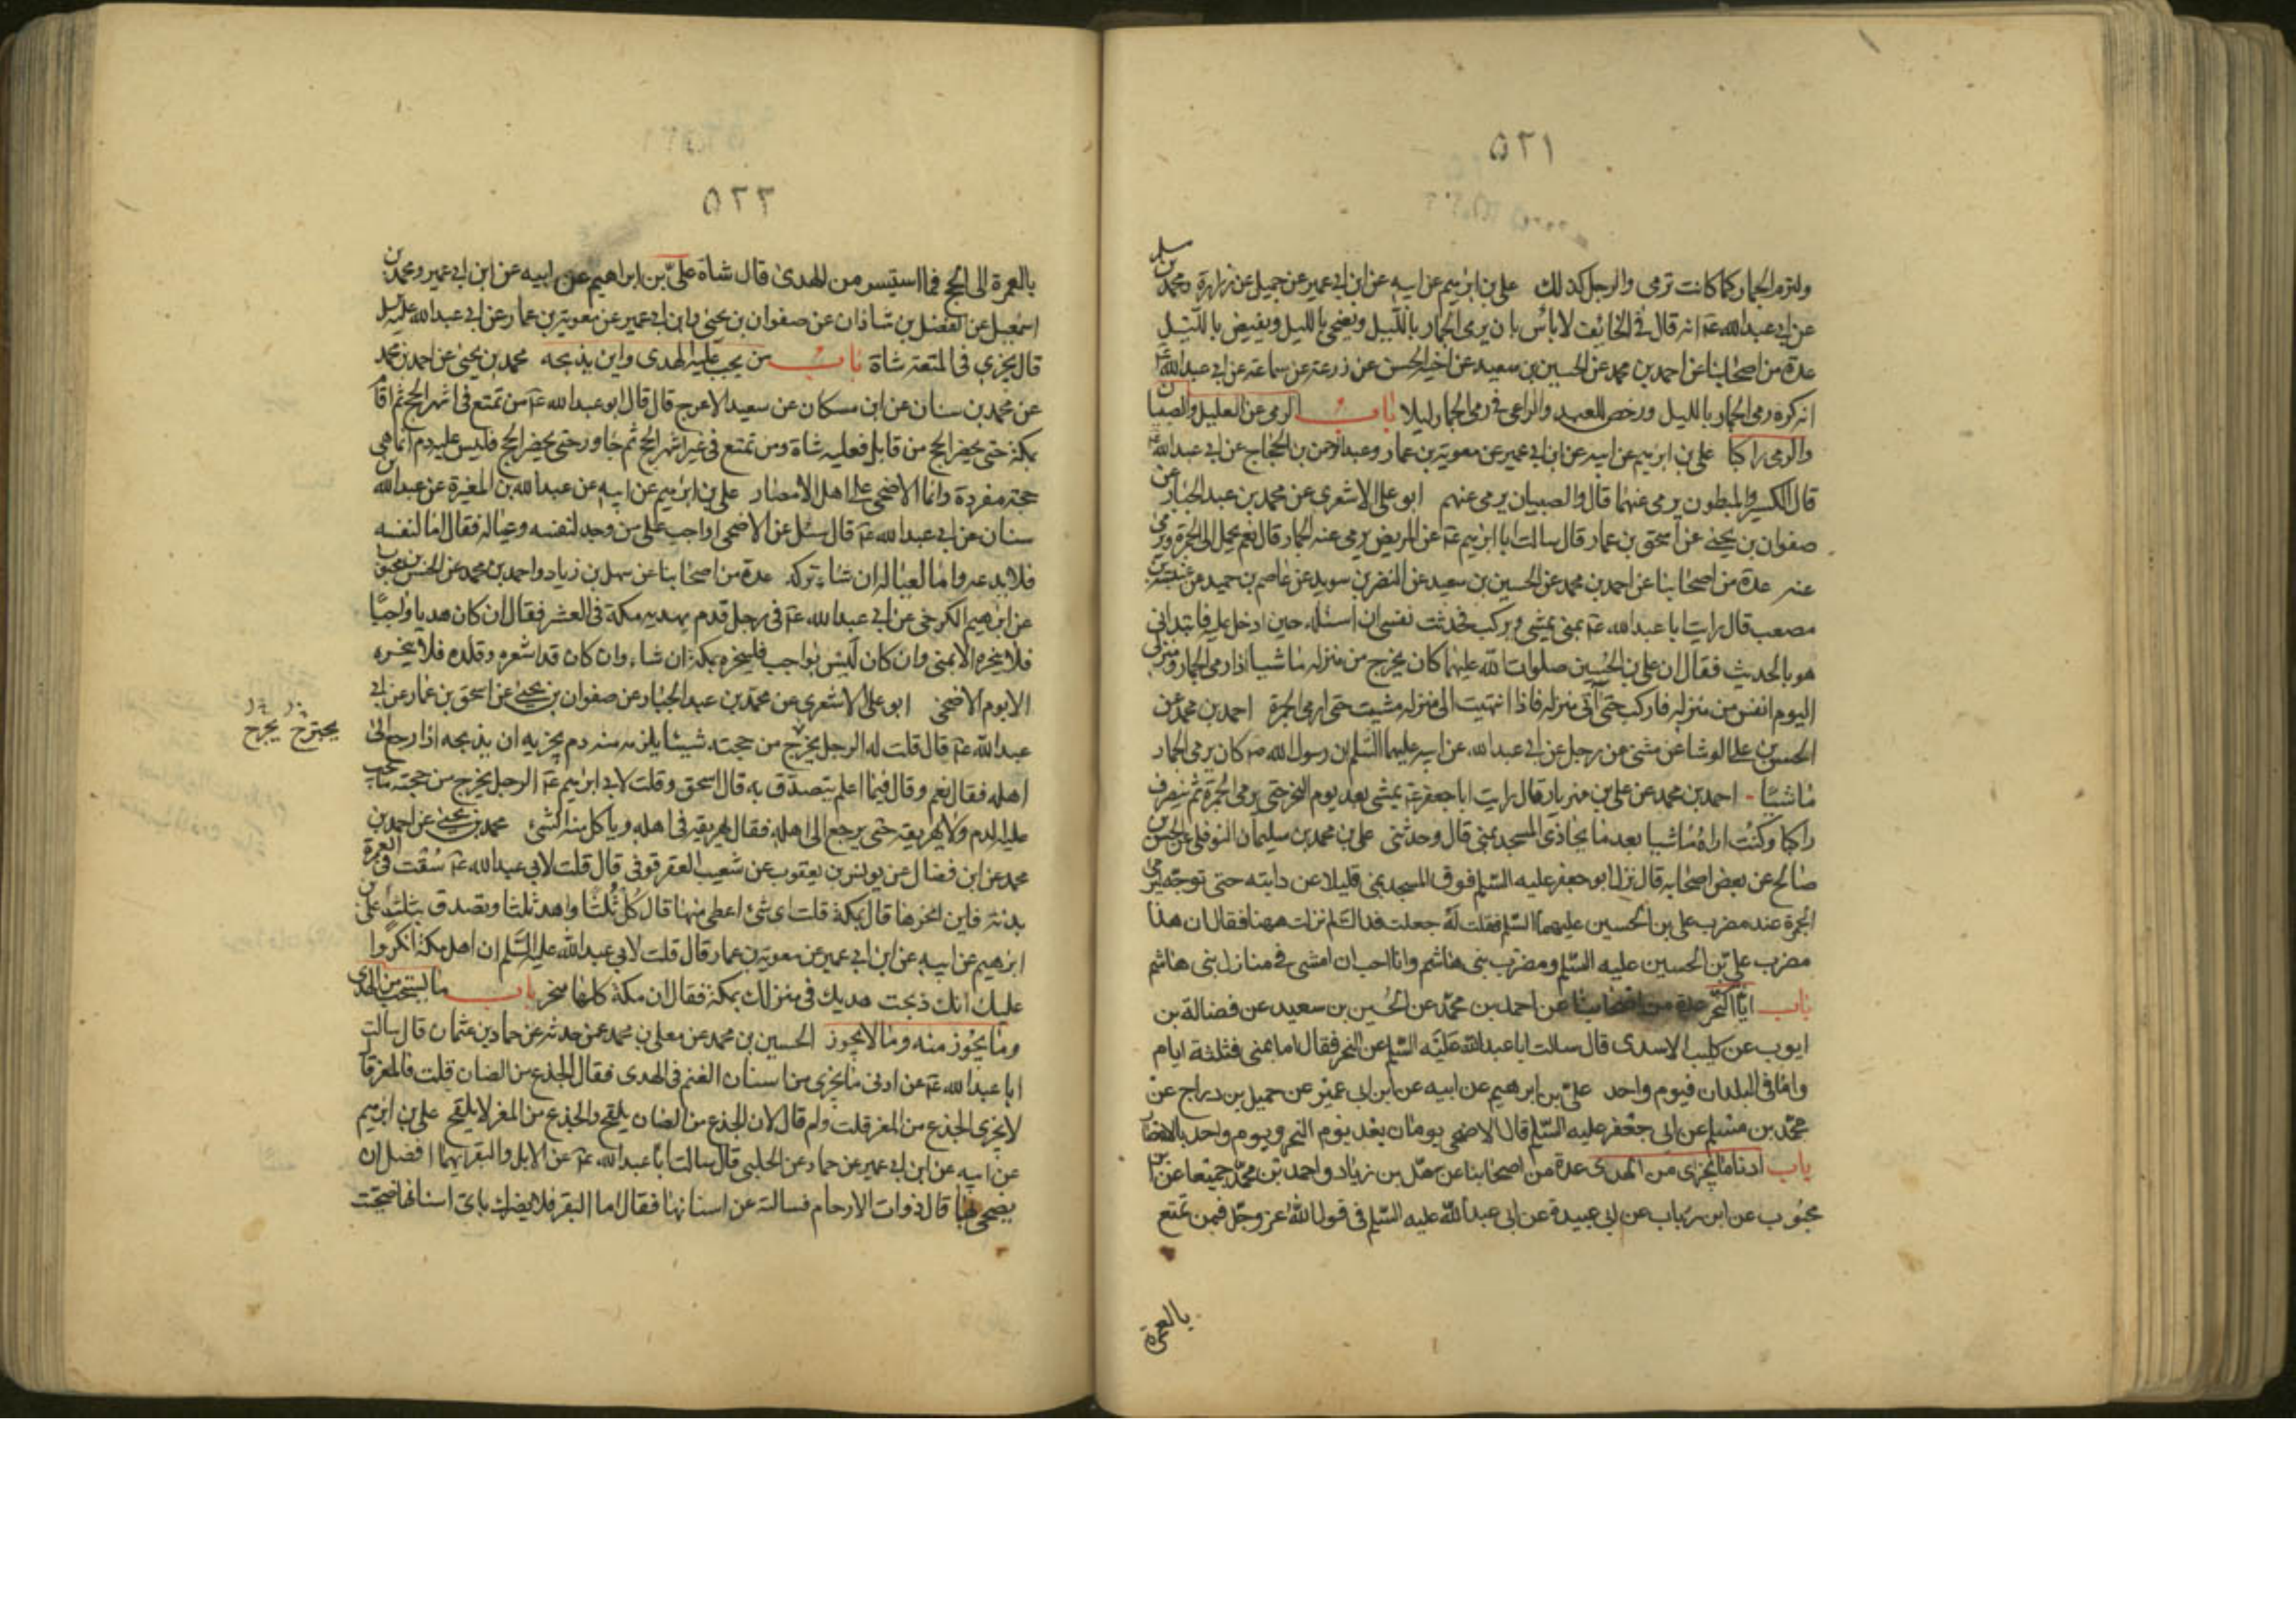 ٥٢١
ولترم الجمار كما كانت ترمى والرجل كذلك علي بن ابرهيم عن ابيه عن ابن ابي عمير عن جميل عن زرارة ومحمد بن مسلم
عن ابي عبد الله عۤ انه قال في الخائف لا باس بان يرمى الجمار بالليل ويضحى بالليل ويفيض بالليل
عدة من اصحابنا عن احمد بن محمد عن الحسين بن سعيد عن اخيه الحسن عن زرعة عن سماعة عن ابي عبد الله عۤ
انه كره رمى الجمار بالليل ورخص للعبد والراعى في رمى الجمار ليلا باب الرمى عن العليل والصبيان
والرمى راكبا علي بن ابرهيم عن ابيه عن ابن ابي عمير عن معوية بن عمار وعبد الرحمن بن الحجاج عن ابي عبد الله عۤ
قال الكسير والمبطون يرمى عنهما قال والصبيان يرمى عنهم ابو علي الاشعرى عن محمد بن عبد الجبار عن
صفوان بن يحيى عن اسحق بن عمار قال سالت ابا ابرهيم عۤ عن المريض يرمى عنه الجمار قال نعم يحمل الى الجمرة ويرمى
عنه عدة من اصحابنا عن احمد بن محمد عن الحسين بن سعيد عن النضر بن سويد عن عاصم بن حميد عن عنبسة بن
مصعب قال رايت ابا عبد الله عۤ بمنى يمشى ويركب فحدثت نفسى ان اسئله حين ادخل عليه فابتدانى
هو بالحديث فقال ان علي بن الحسين صلوات الله عليهما كان يخرج من منزله ماشيا اذا رمى الجمار ومنزلى
اليوم انفس من منزله فاركب حتى آتى منزله فاذا انتهيت الى منزله مشيت حتى ارمى الجمرة احمد بن محمد عن
الحسن بن علي الوشا عن مثنى عن رجل عن ابي عبد الله عن ابيه عليهما السلم ان رسول الله ص كان يرمى الجمار
ماشيا احمد بن محمد عن علي بن مهزيار قال رايت ابا جعفر عۤ يمشى بعد يوم النحر حتى يرمى الجمرة ثم ينصرف
راكبا وكنت اراه ماشيا بعد ما يحاذى المسجد بمنى قال وحدثنى علي بن محمد بن سليمان النوفلى عن الحسن بن
صالح عن بعض اصحابه قال نزل ابو جعفر عليه السلم فوق المسجد بمنى قليلا عن دابته حتى توجه ليرمى
الجمرة عند مضرب علي بن الحسين عليهما السلم فقلت له جعلت فداك لم نزلت ههنا فقال ان هذا
مضرب علي بن الحسين عليه السلم ومضرب بنى هاشم وانا احب ان امشى في منازل بنى هاشم
باب ايام النحر عدة من اصحابنا عن احمد بن محمد عن الحسين بن سعيد عن فضالة بن
ايوب عن كليب الاسدى قال سالت ابا عبد الله عليه السلم عن النحر فقال اما بمنى فثلثة ايام
واما فى البلدان فيوم واحد علي بن ابرهيم عن ابيه عن ابن ابى عمير عن جميل بن دراج عن
محمد بن مسلم عن ابى جعفر عليه السلم قال الاضحى يومان بعد يوم النحر ويوم واحد بالامصار
باب ادنا ما يجزى من الهدى عدة من اصحابنا عن سهل بن زياد واحمد بن محمد جميعا عن ابن
محبوب عن ابن رئاب عن ابى عبيدة عن ابى عبد الله عليه السلم فى قول الله عز وجل فمن تمتع
بالعمرة
٥٢٢
بالعمرة الى الحج فما استيسر من الهدى قال شاة علي بن ابراهيم عن ابيه عن ابن ابي عمير ومحمد بن
اسمعيل عن الفضل بن شاذان عن صفوان بن يحيى وابن ابي عمير عن معوية بن عمار عن ابي عبد الله عليه السلم
قال يجزى فى المتعة شاة باب من يجب عليه الهدى واين يذبحه محمد بن يحيى عن احمد بن محمد
عن محمد بن سنان عن ابن مسكان عن سعيد الاعرج قال قال ابو عبد الله عۤ من تمتع فى اشهر الحج ثم اقام
بمكة حتى يحضر الحج من قابل فعليه شاة ومن تمتع فى غير اشهر الحج ثم جاور حتى يحضر الحج فليس عليه دم انما هى
حجة مفردة وانما الاضحى على اهل الامصار علي بن ابرهيم عن ابيه عن عبد الله بن المغيرة عن عبد الله بن
سنان عن ابي عبد الله عۤ قال سئل عن الاضحى اواجب على من وجد لنفسه وعياله فقال اما لنفسه
فلا يدعه واما لعياله ان شاء تركه عدة من اصحابنا عن سهل بن زياد واحمد بن محمد عن الحسن بن محبوب
عن ابرهيم الكرخى عن ابي عبد الله عۤ فى رجل قدم بهديه مكة فى العشر فقال ان كان هديا واجبا
فلا ينحره الا بمنى وان كان ليس بواجب فلينحره بمكة ان شاء وان كان قد اشعره وقلده فلا ينحره
الا يوم الاضحى ابو علي الاشعرى عن محمد بن عبد الجبار عن صفوان بن يحيى عن اسحق بن عمار عن ابي
عبد الله عۤ قال قلت له الرجل يخرج من حجته شيئا يلزمه منه دم يجزيه ان يذبحه اذا رجع الى
يجترح يجرح
اهله فقال نعم وقال فيما اعلم يتصدق به قال اسحق وقلت لابي ابرهيم عۤ الرجل يخرج من حجته ما يجب
عليه الدم ولا يهريقه حتى يرجع الى اهله فقال يهريقه فى اهله وياكل منه الشئ محمد بن يحيى عن احمد بن
محمد عن ابن فضال عن يونس بن يعقوب عن شعيب العقرقوفى قال قلت لابي عبد الله عۤ سقت فى العمرة
بدنة فاين انحرها قال بمكة قلت اى شئ اعطى منها قال كل ثلثا واهد ثلثا وتصدق بثلث علي بن
ابرهيم عن ابيه عن ابن ابي عمير عن معوية بن عمار قال قلت لابي عبد الله عليه السلم ان اهل مكة انكروا
عليك انك ذبحت هديك فى منزلك بمكة فقال ان مكة كلها منحر باب ما يستحب من الهدى
وما يجوز منه وما لا يجوز الحسين بن محمد عن معلى بن محمد عمن حدثه عن حماد بن عثمان قال سالت
ابا عبد الله عۤ عن ادنى ما يجزى من اسنان الغنم فى الهدى فقال الجذع من الضان قلت فالمعز قال
لا يجزى الجذع من المعز قلت ولم قال لان الجذع من الضان يلقح والجذع من المعز لا يلقح علي بن ابرهيم
عن ابيه عن ابن ابي عمير عن حماد عن الحلبى قال سالت ابا عبد الله عۤ عن الابل والبقر ايهما افضل ان
يضحى بها قال ذوات الارحام فسالته عن اسنانها فقال اما البقر فلا يضرك باى اسنانها ضحيت